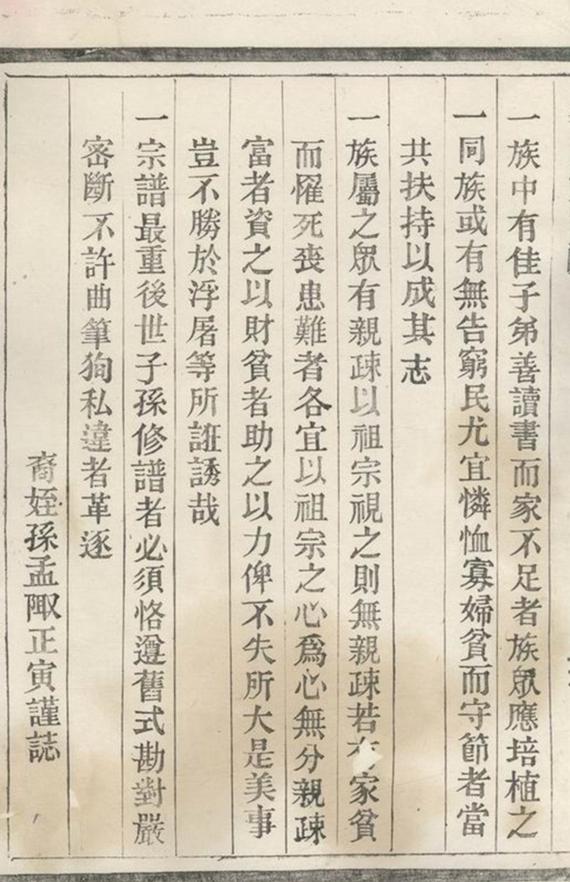 一族中有佳子弟善讀書而家不足者族眾應培植之
一同族或有無告窮民尤宜憐恤寡婦貧而守節者當
共扶持以成其志
一族屬之眾有親疎以祖宗視之則無親疎若有家貧
而罹死喪患難者各宜以祖宗之心爲心無分親疎
富者資之以財貧者助之以力俾不失所大是美事
豈不勝於浮屠等所誑誘哉
一宗譜最重後世子孫修譜者必須恪遵舊式勘對嚴
密斷不許曲筆狥私違者革逐
裔姪孫孟陬正寅謹誌